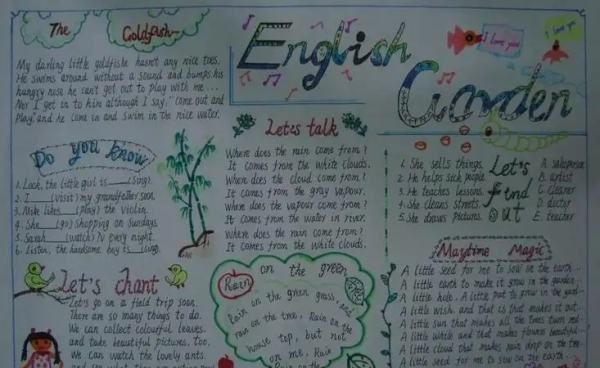 The Goldfish
My darling little goldfish hasn't any nice toes.
He swims around without a sound and bumps his
hungry nose he can't get out to play with me...
Nor I get in to him although I say, "Come out and
Play," and he come in and swim in the nice water.
English
Garden
I love you
I love you
Do you know
1. Look, the little girl is ___ (sing).
2. I ___ (visit) my grandfather soon.
3. Mike likes ___ (play) the violin.
4. She ___ (go) shopping on Sundays
5. Sarah ___ (watch) TV every night.
6. Listen, the handsome boy is ___ (sing).
Let's talk
Where does the rain come from?
It comes from the white clouds.
Where does the cloud come from?
It comes from the gray vapour.
Where does the vapour come from?
It comes from the water in river.
Where does the rain come from?
It comes from the white clouds.
Let's find out
1. She sells things.
2. He helps sick people.
3. He teaches lessons.
4. She cleans streets.
5. She draws pictures.
A. salesperson
B. artist
C. cleaner
D. doctor
E. teacher
Let's chant
Let's go on a field trip soon.
There are so many things to do.
We can collect colourful leaves,
and take beautiful pictures, too.
We can watch the lovely ants.
Rain on the green
Rain on the green grass, and
rain on the tree, Rain on the
house top, but not
on me, Rain
Rain on the
Maytime Magic
A little seed for me to sow on the earth...
A little earth to make it grow in the garden
A little hole, A little pat to grow in the
A little wish, and that is that makes it out.
A little sun that makes all the times turn
A little while and that makes flowers beautiful
A little cloud that makes rain drop on the tree
A little seed for me to sow on the earth...